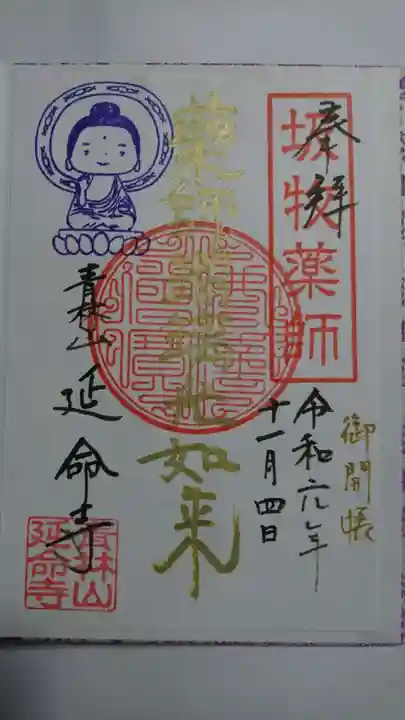 御開帳
奉拝
薬師
令和六年
十一月四日
薬師瑠璃光如来
青林山 延命寺
青林山
延命寺